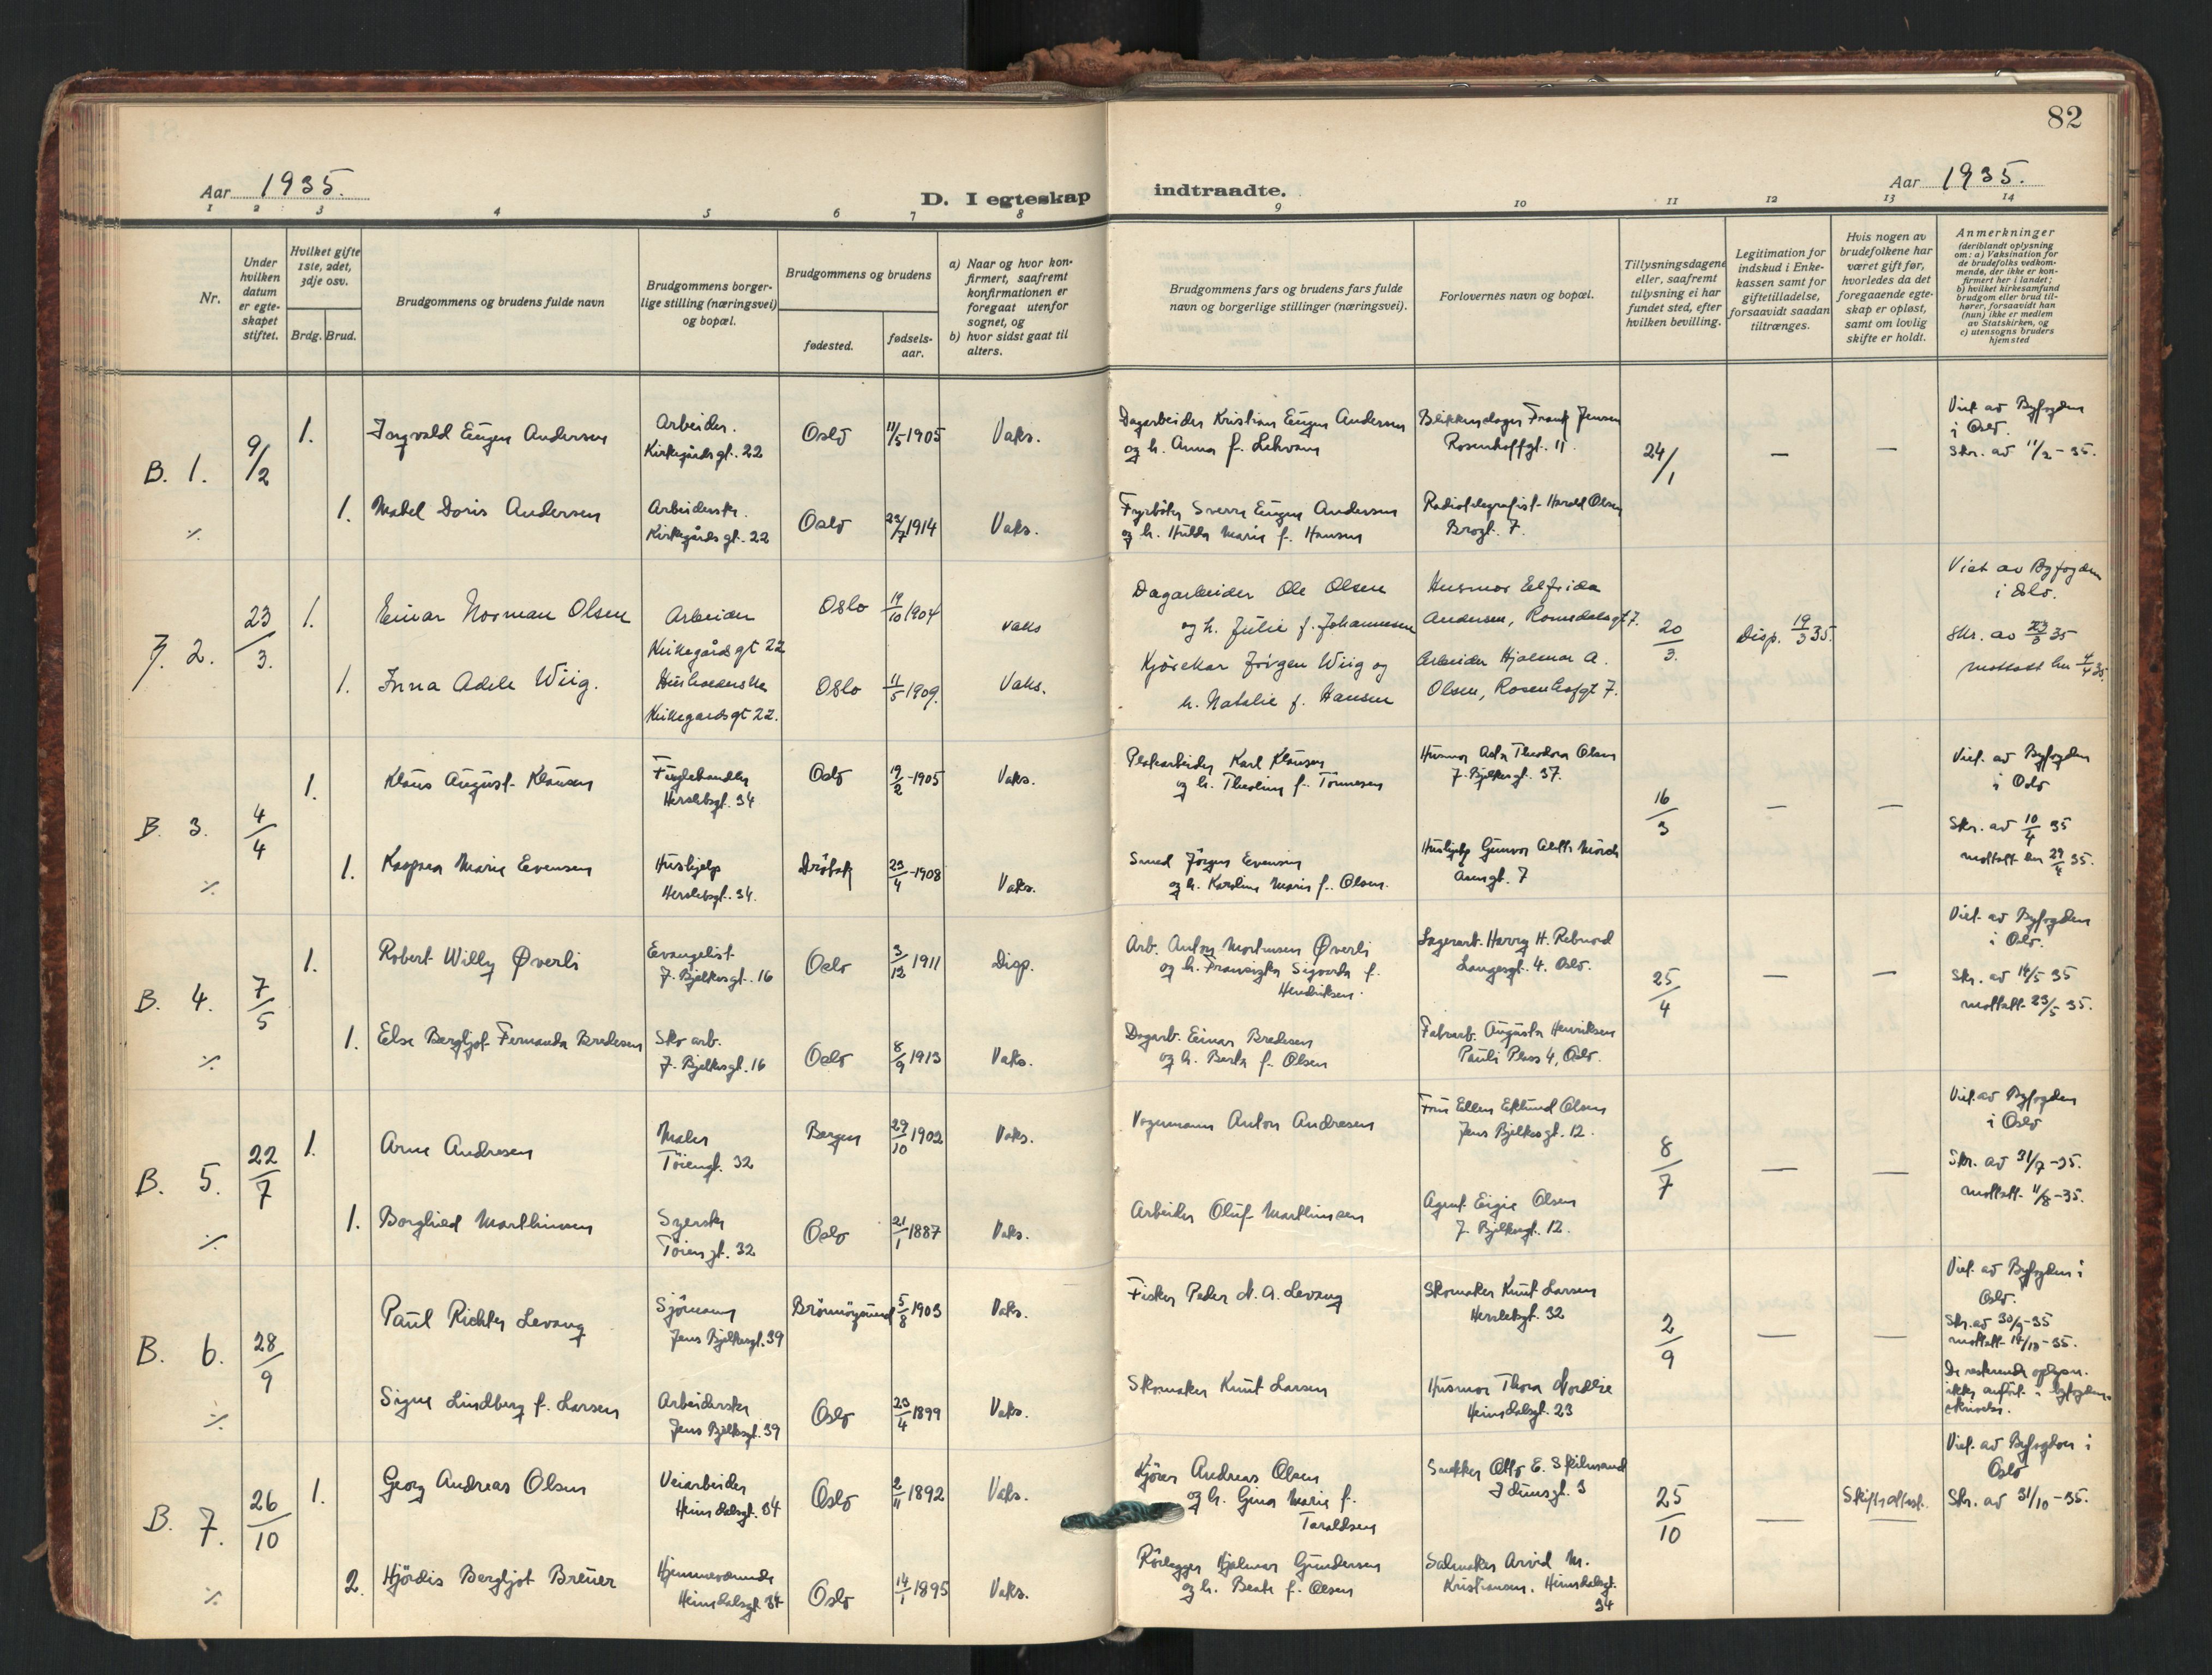 82
Aar 1935.
D. I egteskap indtraadte.
Aar 1935.
1 2 3 4 5 6 7 8 9 10 11 12 13 14
Nr.
Under hvilken datum er egte-skapet stiftet.
Hvilket gifte 1ste, 2det, 3dje osv.
Brdg. Brud.
Brudgommens og brudens fulde navn
Brudgommens borger-lige stilling (næringsvei) og bopæl.
Brudgommens og brudens
fødested.
fødsels-aar.
a) Naar og hvor kon-firmert, saafremt konfirmationen er foregaat utenfor sognet, og
b) hvor sidst gaat til alters.
Brudgommens fars og brudens fars fulde navn og borgerlige stillinger (næringsvei).
Forlovernes navn og bopæl.
Tillysningsdagene eller, saafremt tillysning ei har fundet sted, efter hvilken bevilling.
Legitimation for indskud i Enke-kassen samt for giftetilladelse, forsaavidt saadan tiltrænges.
Hvis nogen av brudefolkene har været gift før, hvorledes da det foregaaende egte-skap er opløst, samt om lovlig skifte er holdt.
Anmerkninger (deriblandt oplysning om: a) Vaksination for de brudefolks vedkom-mende, der ikke er kon-firmert her i landet; b) hvilket kirkesamfund brudgom eller brud til-hører, forsaavidt han (hun) ikke er medlem av Statskirken, og c) utensogns bruders hjemsted
B. 1. 9/2 1. Ingvald Eugen Andersen
Arbeider. Kirkegårdsgt. 22
Oslo 11/5 1905 Vaks.
Dagarbeider Kristian Eugen Andersen
og h. Anna f. Lehvam
Blikkenslager Frank Jensen
Rosenhoffgt. 11
24/1 — —
Viet av Byfogden
i Oslo.
Skr. av 11/2 - 35.
% 1. Mabel Doris Andersen
Arbeiderske. Kirkegårdsgt. 22
Oslo 23/7 1914 Vaks.
Fyrbøter Sverre Eugen Andersen
og h. Hulda Marie f. Hansen
Radiotelegrafist Harald Olsen
Brogt. 7.
7. 2. 23/3. 1. Einar Norman Olsen
Arbeider Kirkegårdsgt 22
Oslo 19/10 1904 vaks
Dagarbeider Ole Olsen
og h. Julie f. Johannesen
Husmor Elfrida
Andersen, Romsdalsgt 7.
20/3. Disp. 19/3 35.
Viet av Byfogden
i Oslo.
Skr. av 23/3 35
mottatt her 4/4 35.
1. Inna Adele Wiig.
Kirkegaardsgt 22.
Oslo 11/5 1909. Vaks.
Kjørekar Jørgen Wiig og
h. Natalie f. Hansen
Arbeider Hjalmar A.
Olsen, Rosenhofgt 7.
B. 3. 4/4 1. Klaus August Klausen
Fuglehandler Herslebsgt. 34
Oslo 19/2 - 1905 Vaks.
Platearbeider Karl Klausen
og h. Theoline f. Tønnesen
Husmor Asta Theodora Olsen
J. Bjelkesgt. 37.
16/3 — —
Viet. av Byfogden
i Oslo
Skr. av 10/4 35
mottatt her 29/4 35.
% 1. Kaspara Marie Evensen
Hushjelp Herslebsgt. 34.
Drøbak 23/4 - 1908 Vaks.
Smed Jørgen Evensen
og h. Karoline Marie f. Olsen.
Hushjelp Gunvor Aleth Mörch
Åsengt. 7
B. 4. 7/5 1. Robert Willy Øverli
Evangelist J. Bjelkesgt. 16
Oslo 3/12 1911 Disp.
Arb. Anton Mortensen Øverli
og h. Fransiska Sigvarda f.
Hendriksen.
Lagerarb. Harry H. Rebnord
Langesgt. 4. Oslo.
25/4 — —
Viet av Byfogden
i Oslo.
Skr. av 14/5 35
mottatt 23/5 35.
% 1. Else Bergljot Fernanda Bredesen
Sko arb. J. Bjelkesgt. 16
Oslo 8/9 1913 Vaks.
Dagarb. Einar Bredesen
og h. Berta f. Olsen
Fabrarb. Augusta Henriksen
Pauli Plass 4, Oslo.
B. 5. 22/7 1. Arne Andresen
Maler Tøiengt. 32
Bergen 29/10 1902 Vaks.
Vognmann Anton Andresen
Fru Ellen Eklund Olsen
Jens Bjelkesgt. 12.
8/7 — —
Viet. av Byfogden
i Oslo
Skr. av 31/7 - 35.
mottatt 11/8 - 35.
% 1. Borghild Marthinsen
Syerske Tøiengt. 32
Oslo 21/1 1887 Vaks.
Arbeider Oluf Marthinsen
Agent Eigie Olsen
J. Bjelkesgt. 12.
B. 6. 28/9 Paul Richter Levang
Sjømann Jens Bjelkesgt. 39
Brønnøysund 5/8 1903 Vaks.
Fisker Peder N. A. Levang
Skomaker Knut Larsen
Herslebsgt. 32
2/9 — —
Viet. av Byfogden i
Oslo.
Skr. av 30/9 - 35
mottatt 14/10 - 35.
De resterende oplysn.
ikke anført i byfogdens
skrivelse.
% Signe Lindberg f. Larsen
Arbeiderske Jens Bjelkesgt. 39
Oslo 23/4 1899 Vaks.
Skomaker Knut Larsen
Husmor Thora Nordlie
Heimdalsgt. 23
B. 7. 26/10 1. Georg Andreas Olsen
Veiarbeider Heimdalsgt. 34
Oslo 2/11 1892 Vaks.
Kjører Andreas Olsen
og h. Gina Marie f.
Taraldsen
Snekker Otto E.
Idunsgt. 3
25/10 — Skifteattest.
Viet. av Byfogden i
Oslo
Skr. av 31/10 - 35.
% 2. Hjørdis Bergljot Breuer
Hjemmeværende Heimdalsgt. 34
Oslo 14/1 1895 Vaks.
Rørlegger Hjalmar Gundersen
og h. Beate f. Olsen
Salmaker Arvid M.
Kristiansen. Heimdalsgt.
34